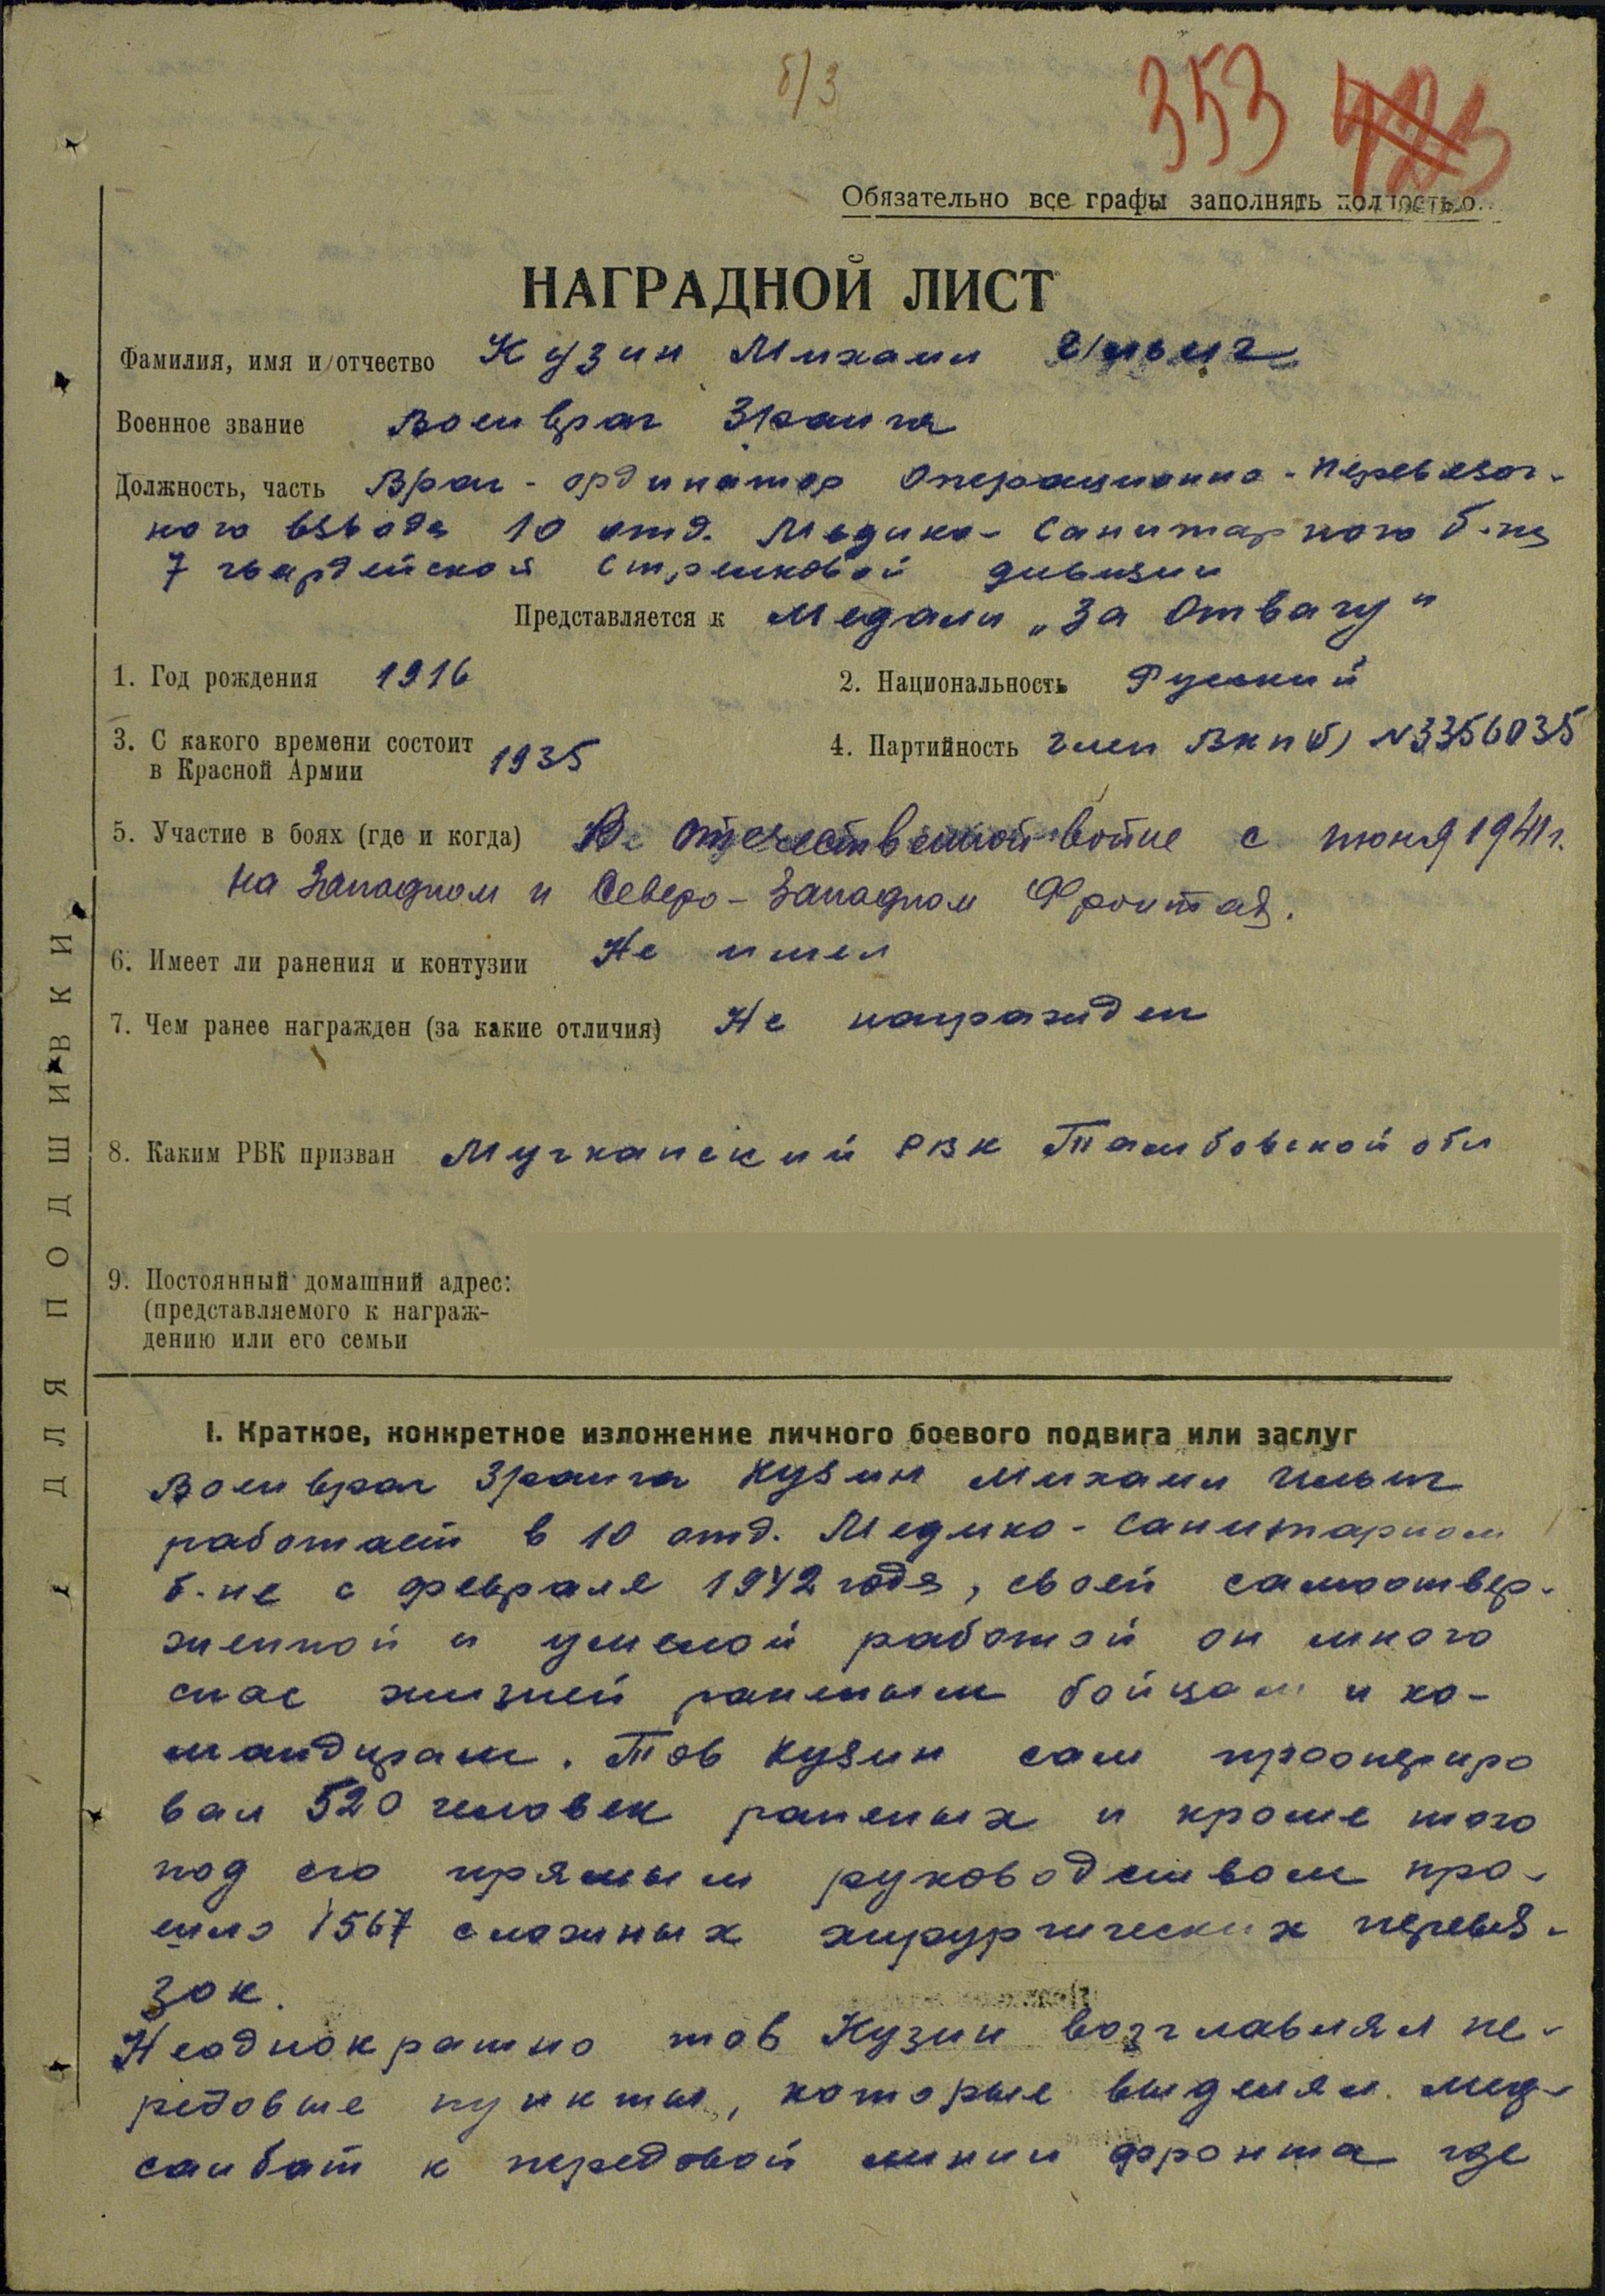 б/3
353 423
Обязательно все графы заполнять полностью.
НАГРАДНОЙ ЛИСТ
Фамилия, имя и отчество Кузин Михаил Ильич
Военное звание Военврач 3 ранга
Должность, часть Врач-ординатор Операционно-перевязоч-
ного взвода 10 отд. Медико-Санитарного б-на
7 гвардейской Стрелковой дивизии
Представляется к Медали „За Отвагу"
1. Год рождения 1916
2. Национальность Русский
3. С какого времени состоит в Красной Армии 1935
4. Партийность член ВКП(б) N3356035
5. Участие в боях (где и когда) В отечественной войне с июня 1941г.
на Западном и Северо-Западном Фронтах.
6. Имеет ли ранения и контузии Не имел
7. Чем ранее награжден (за какие отличия) Не награжден
8. Каким РВК призван Мучкапский РВК Тамбовской обл
9. Постоянный домашний адрес:
(представляемого к награж-
дению или его семьи
ДЛЯ ПОДШИВКИ
I. Краткое, конкретное изложение личного боевого подвига или заслуг
Военврач 3 ранга Кузин Михаил Ильич
работает в 10 отд. Медико-Санитарном
б-не с февраля 1942 года, своей самоотвер-
женной и умелой работой он много
спас жизней раненым бойцам и ко-
мандирам. Тов Кузин сам проопериро
вал 520 человек раненых и кроме того
под его прямым руководством про-
шло 1567 сложных хирургических перевя-
зок.
Неоднократно тов Кузин возглавлял пе-
редовые пункты, которые выделял мед-
санбат к передовой линии фронта где